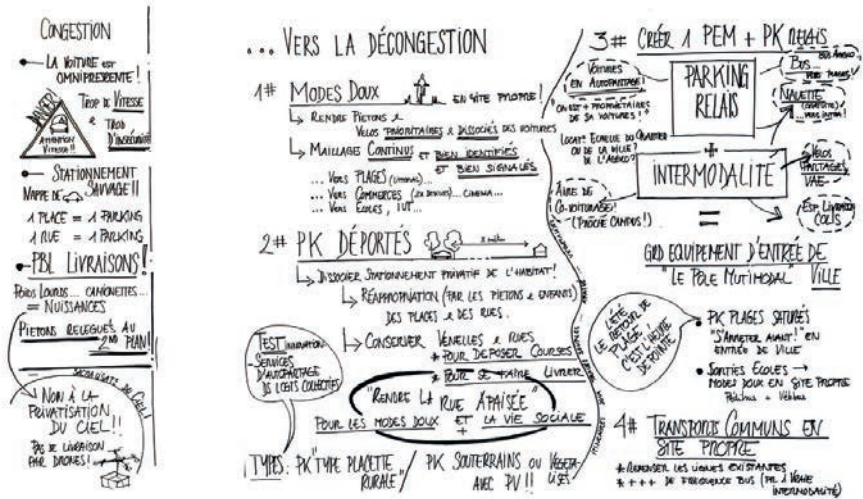 CONGESTION
LA VOITURE EST
OMNIPRESENTE !
DANGER!
ATTENTION
VITESSE !!
TROP DE VITESSE
& TROP
D'INSÉCURITÉ
STATIONNEMENT
SAUVAGE !!
NAPPE DE
1 PLACE = 1 PARKING
1 RUE = 1 PARKING
PBL LIVRAISONS !
POIDS LOURDS... CAMIONETTES...
= NUISANCES
PIETONS RELEGUÉS AU
2ND PLAN !
NON À LA
PRIVATISATION
DU CIEL !!
PAS DE LIVRAISON
PAR DRONES !
... VERS LA DÉCONGESTION
1# MODES DOUX
EN SITE PROPRE !
RENDRE PIETONS &
VELOS PRIORITAIRES & DISSOCIÉS DES VOITURES
MAILLAGE CONTINUS ET BIEN IDENTIFIÉS
ET BIEN SIGNALÉS
... VERS PLAGES (LITTORAL)...
... VERS COMMERCES ... CINEMA...
... VERS ECOLES, IUT...
2# PK DÉPORTÉS
DISSOCIER STATIONNEMENT PRIVATIF DE L'HABITAT !
RÉAPPROPRIATION (PAR LES PIETONS & ENFANTS)
DES PLACES & DES RUES.
CONSERVER VENELLES & RUES
* POUR DEPOSER COURSES
* POUR SE FAIRE LIVRER
TEST INNOVATION
SERVICES
D'AUTOPARTAGE
DS LOGTS COLLECTIFS
"RENDRE LA RUE APAISÉE"
POUR LES MODES DOUX ET LA VIE SOCIALE
+
TYPES : PK "TYPE PLACETTE
RURALE" / PK SOUTERRAINS OU VEGETA-
LISÉS
AVEC PV !!
3# CRÉER 1 PEM + PK RELAIS
VOITURES
EN AUTOPARTAGE !
"ON EST + PROPRIÉTAIRES
DE SA VOITURES !"
LOCAT° ECHELLE DU QUARTIER
OU DE LA VILLE ?
DE L'AGGLO ?
PARKING
RELAIS
BUS...
NAVETTE
(GRATUITE)
+
INTERMODALITÉ
VELOS
PARTAGÉS
VAE
AIRE DE
CO-VOITURAGE !
(PROCHE CAMPUS !)
ESP. LIVRAISON
COLIS
=
GRD EQUIPEMENT D'ENTRÉE DE
"LE POLE MUTIMODAL" VILLE
L'ÉTÉ
LE RETOUR DE
PLAGE,
C'EST L'HEURE
DE POINTE
PK PLAGES SATURÉS
"S'ARRETER AVANT !" EN
ENTRÉE DE VILLE
SORTIES ECOLES →
MODES DOUX EN SITE PROPRE
4# TRANSPORTS COMMUNS EN
SITE PROPRE
* REPENSER LES LIGNES EXISTANTES
* + + + DE FREQUENCE BUS
INTERMODALITÉ)